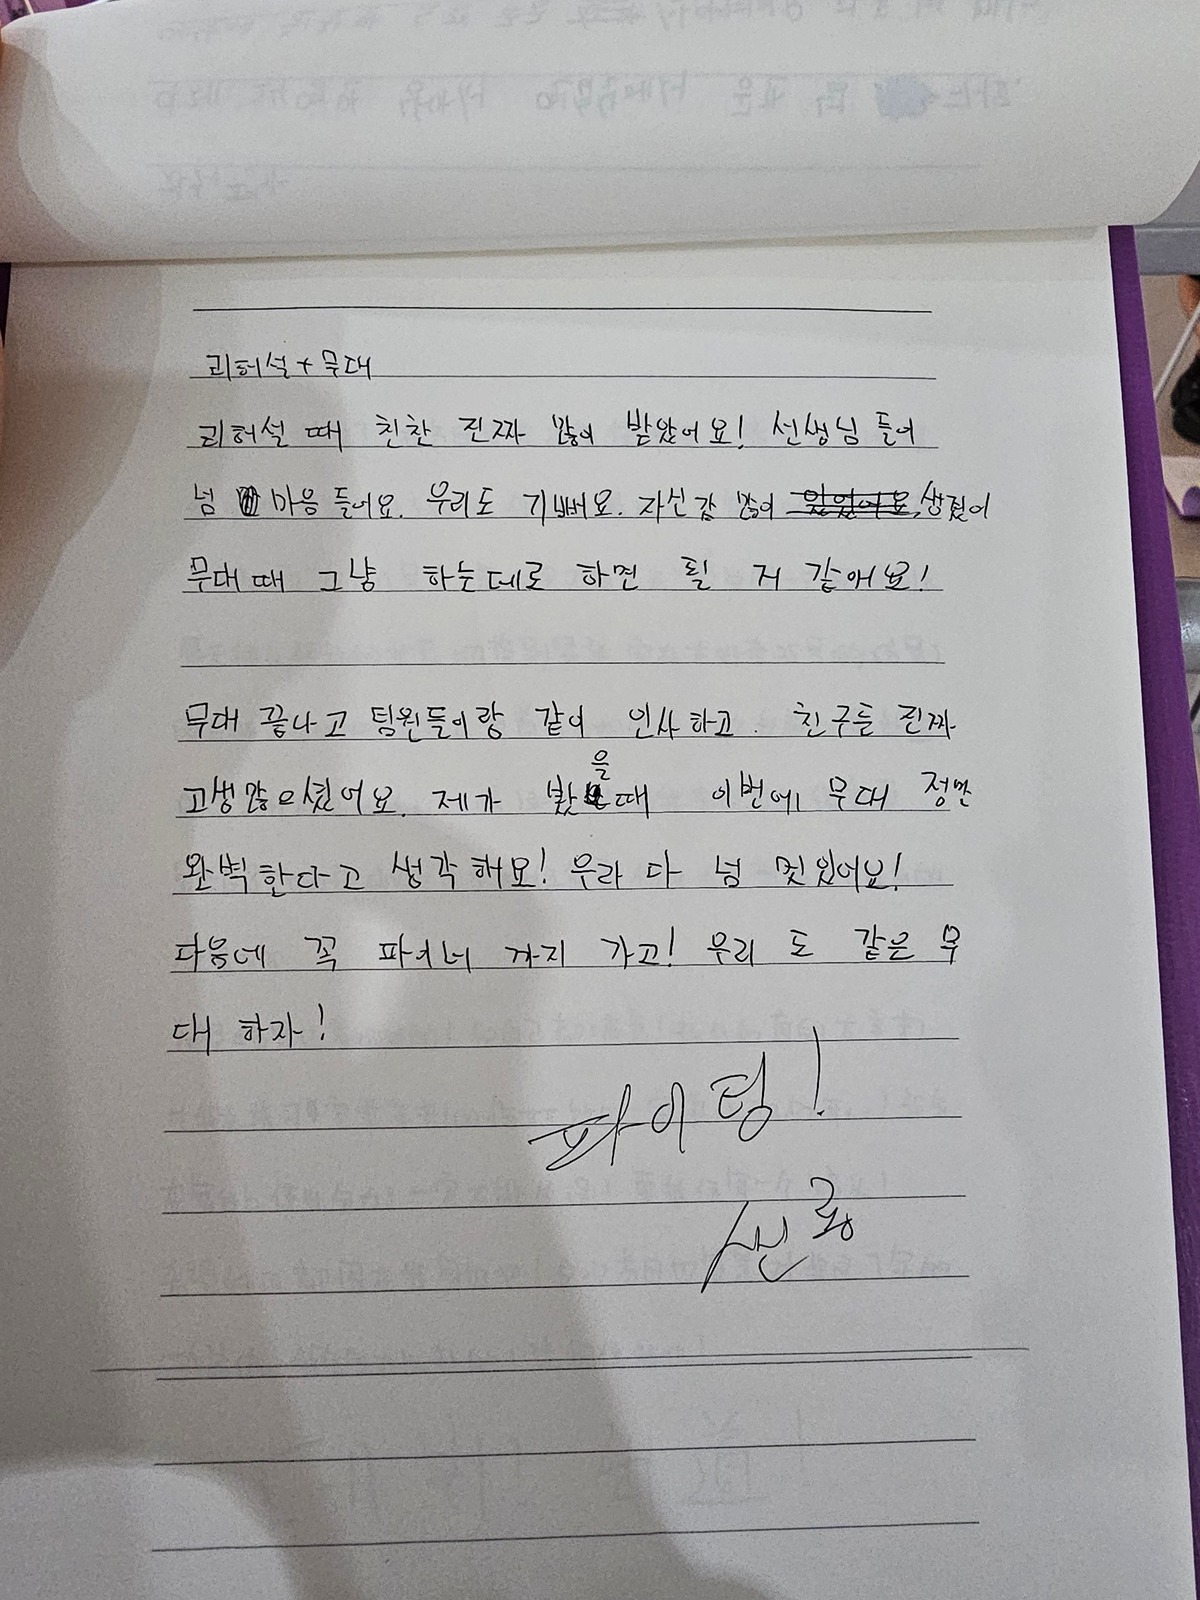 리허설 + 무대
리허설 때 친찬 진짜 많이 받았어요! 선생님 들이
넘 마음 들어요. 우리도 기뻐요. 자신감 많이 생겼어
무대 때 그냥 하는데로 하면 될 거 같애요!
무대 끝나고 팀원들이랑 같이 인사하고. 친구들 진짜
고생많으셨어요. 제가 봤을때 이번에 무대 정말
완벽한다고 생각해요! 우리 다 넘 멋있어요!
다음에 꼭 파이널 까지 가고! 우리 도 같은 무
대 하자!
파이팅!